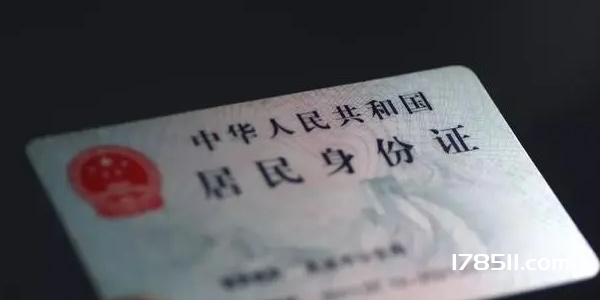 中华人民共和国
居民身份证
178511.com